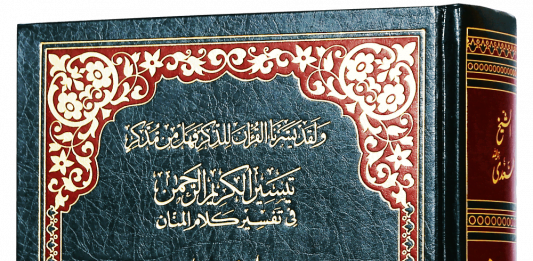 ولقد يسرنا القرآن للذكر فهل من مدكر
تيسير الكريم الرحمن
في تفسير كلام المنان
الشيخ
السعدي